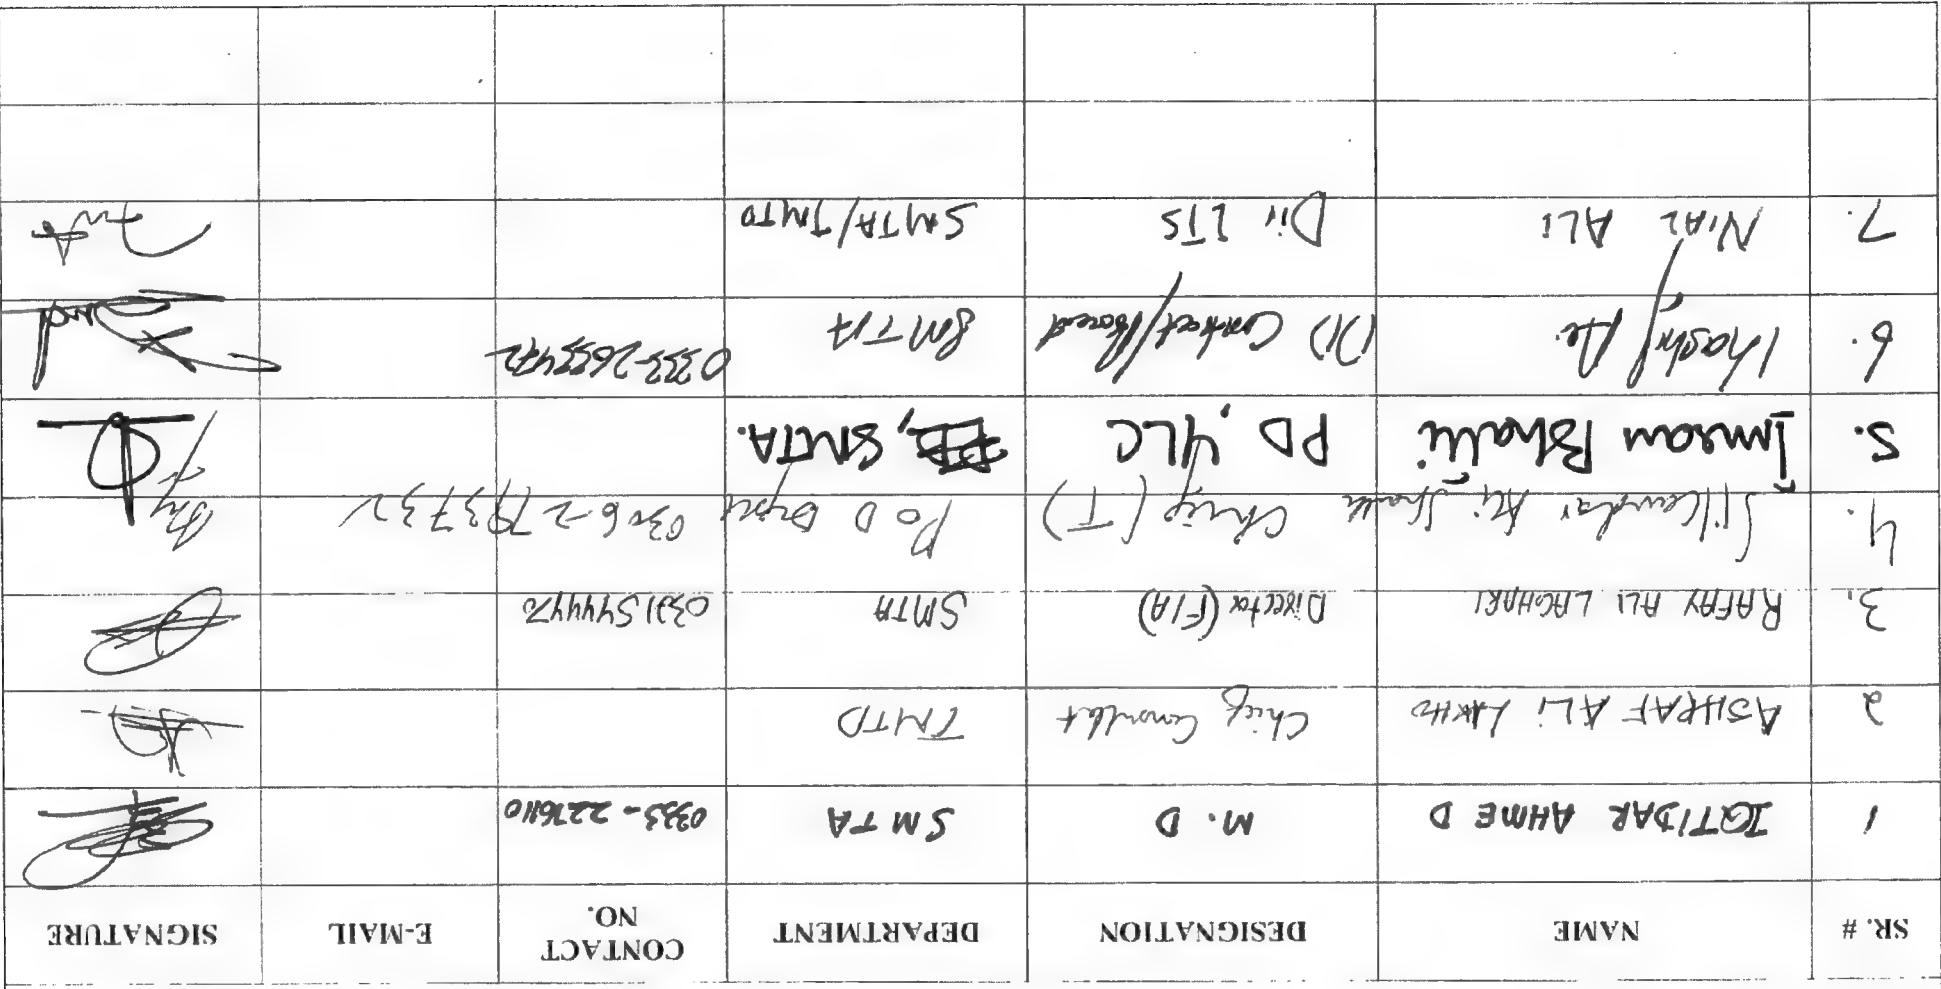 SR. # NAME DESIGNATION DEPARTMENT CONTACT NO. E-MAIL SIGNATURE
1 IQTIDAR AHMED M.D SMTA 0333-2276110
2 ASHRAF ALi Chief Consultat TMTD
3. RAFAY ALI LAGHARI Director (F/A) SMTA 03315444470
4. Ali Chief (T) P&D 0306-2793732
5. Imran Bhatti PD, YLC SMTA.
6. Ali DD Contract/ SMTA 0333-2655472
7. NiAZ ALI Dir ITS SMTA/TMTD